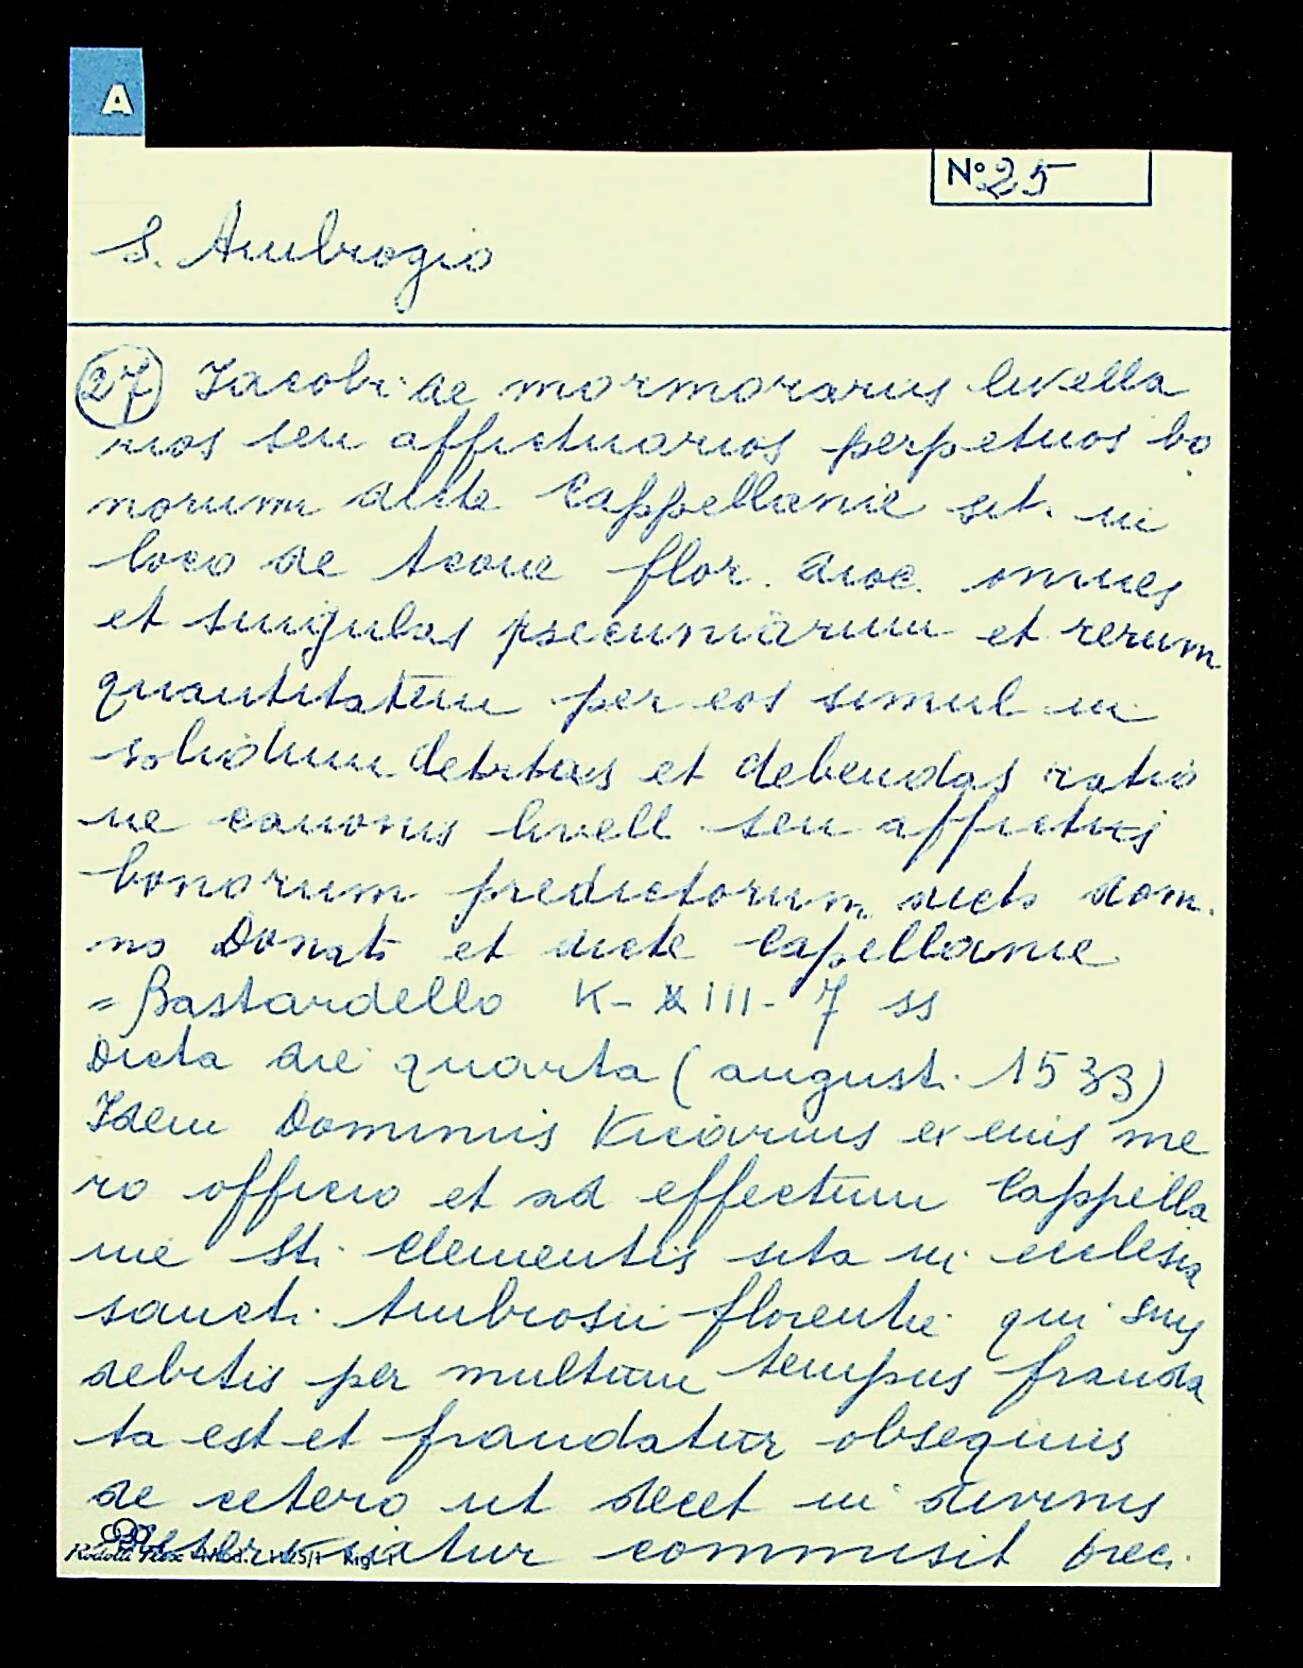 A
N° 25
S. Ambrogio
27 Iacobi de mormorariis livella
rios seu affictuarios perpetuos bo
norum dicte Cappellanie sit. in
loco de flor. dioc. omnes
et singulas psecuniarum et rerum
quantitatem per eos simul in
solidum debitas et debendas ratio
ne canonis livell seu affictus
bonorum predictorum dicto dom.
no Donati et dicte Capellanie
= Bastardello K-XIII-7 ss
Dicta die quarta (augusti 1533)
Idem Dominus Vicarius ex eius me
ro officio et ad effectum Cappella
nie Sti. Clementis sita in ecclesia
sancti Ambrosii florentie qui suis
debitis per multum tempus frauda
ta est et fraudatur obsequiis
de cetero ut decet in divinis
commisit prec.